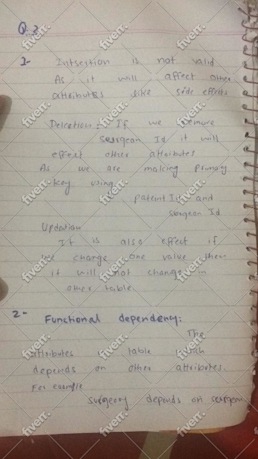 Q.3
1- Intsection is not valid
As it will affect other
attributes like side effects
Deleetion :- If we remure
Seurgean Id it will
effect other attributes
As we are making primary
key using
patent Id and
Seurgean Id
Updation
It is also effect if
we change one value then
it will not change in
other table
2- Functional dependency:
The
attributes table
depends on other attributes.
For example
surgeory depends on seurgeon
fiverr.